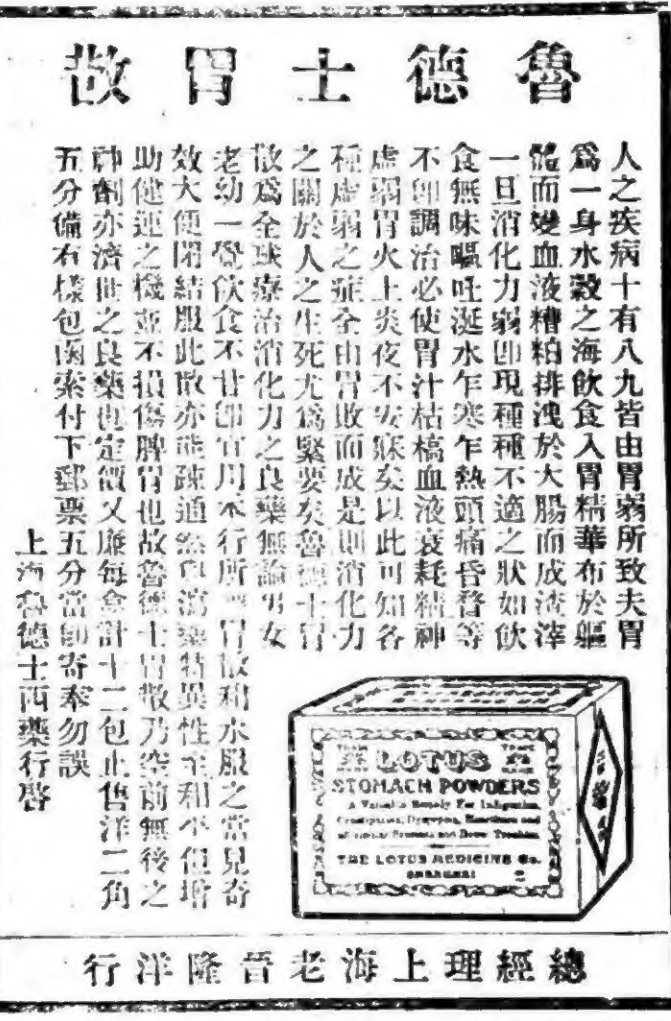 魯德士胃散
人之疾病十有八九皆由胃弱所致夫胃
爲一身水穀之海飲食入胃精華布於軀
體而變血液糟粕排洩於大腸而成渣滓
一旦消化力弱卽現種種不適之狀如飲
食無味嘔吐涎水乍寒乍熱頭痛昏瞀等
不卽調治必使胃汁枯槁血液衰耗精神
虛弱胃火上炎夜不安寐矣以此可知各
種虛弱之症全由胃敗而成是則消化力
之關於人之生死尤爲緊要矣魯德士胃
散爲全球療治消化力之良藥無論男女
老幼一覺飲食不甘卽宜用本行所胃散和水服之當見奇
效大便閉結服此散亦能疎通然與瀉藥特異性主和平但增
助健運之機並不損傷脾胃也故魯德士胃散乃空前無後之
神劑亦濟世之良藥也定價又廉每盒計十二包止售洋二角
五分備有樣包函索付下郵票五分當卽寄奉勿誤
上海魯德士西藥行啓
LOTUS
STOMACH POWDERS
A Valuable Remedy For Indigestion,
Constipation, Dyspepsia, Heartburn and
all Stomach and Bowel Troubles.
THE LOTUS MEDICINE Co.
SHANGHAI
總經理上海老晉隆洋行